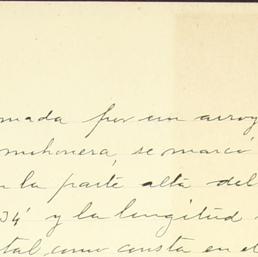 mada por un arroy
mohonera, se marcó
n la parte alta del
34' y la longitud
tal como consta en el